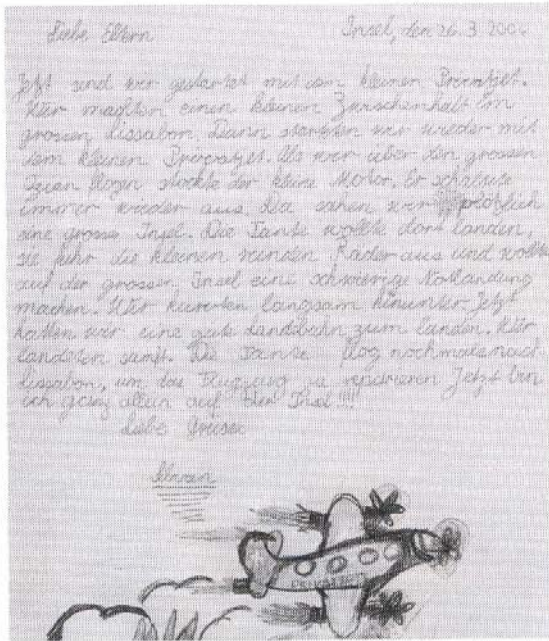 Liebe Eltern Insel, den 26.3.2006
Jetzt sind wir gestartet mit dem kleinen Privatjet.
Wir machten einen kleinen Zwischenhalt im
grossen Lissabon. Dann starteten wir wieder mit
dem kleinen Privatjet. Als wir über den grossen
Ozean flogen stockte der kleine Motor. Er schaltete
immer wieder aus. Da sahen wir plötzlich
eine grosse Insel. Die Tante wollte dort landen,
sie fuhr die kleinen runden Räder aus und wollte
auf der grossen Insel eine schwierige Notlandung
machen. Wir kurvten langsam hinunter. Jetzt
hatten wir eine gute Landebahn zum landen. Wir
landeten sanft. Die Tante flog nochmals nach
Lissabon, um das Flugzeug zu reparieren Jetzt bin
ich ganz allein auf der Insel!!!
Liebe Grüsse